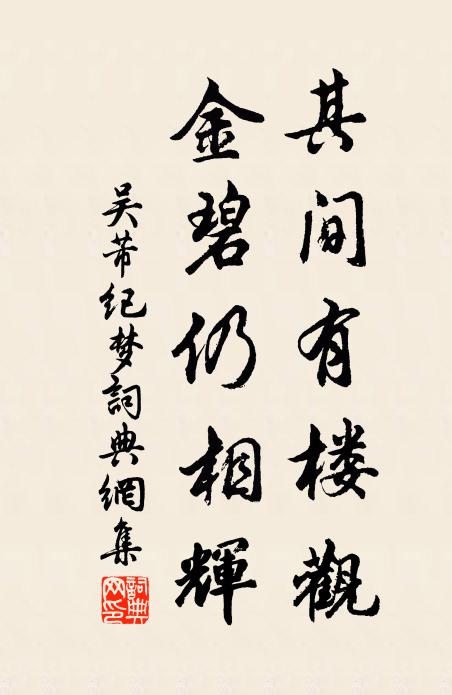 其间有楼觀
金碧仍相輝
吴芾纪梦詞典網集
詞典網印